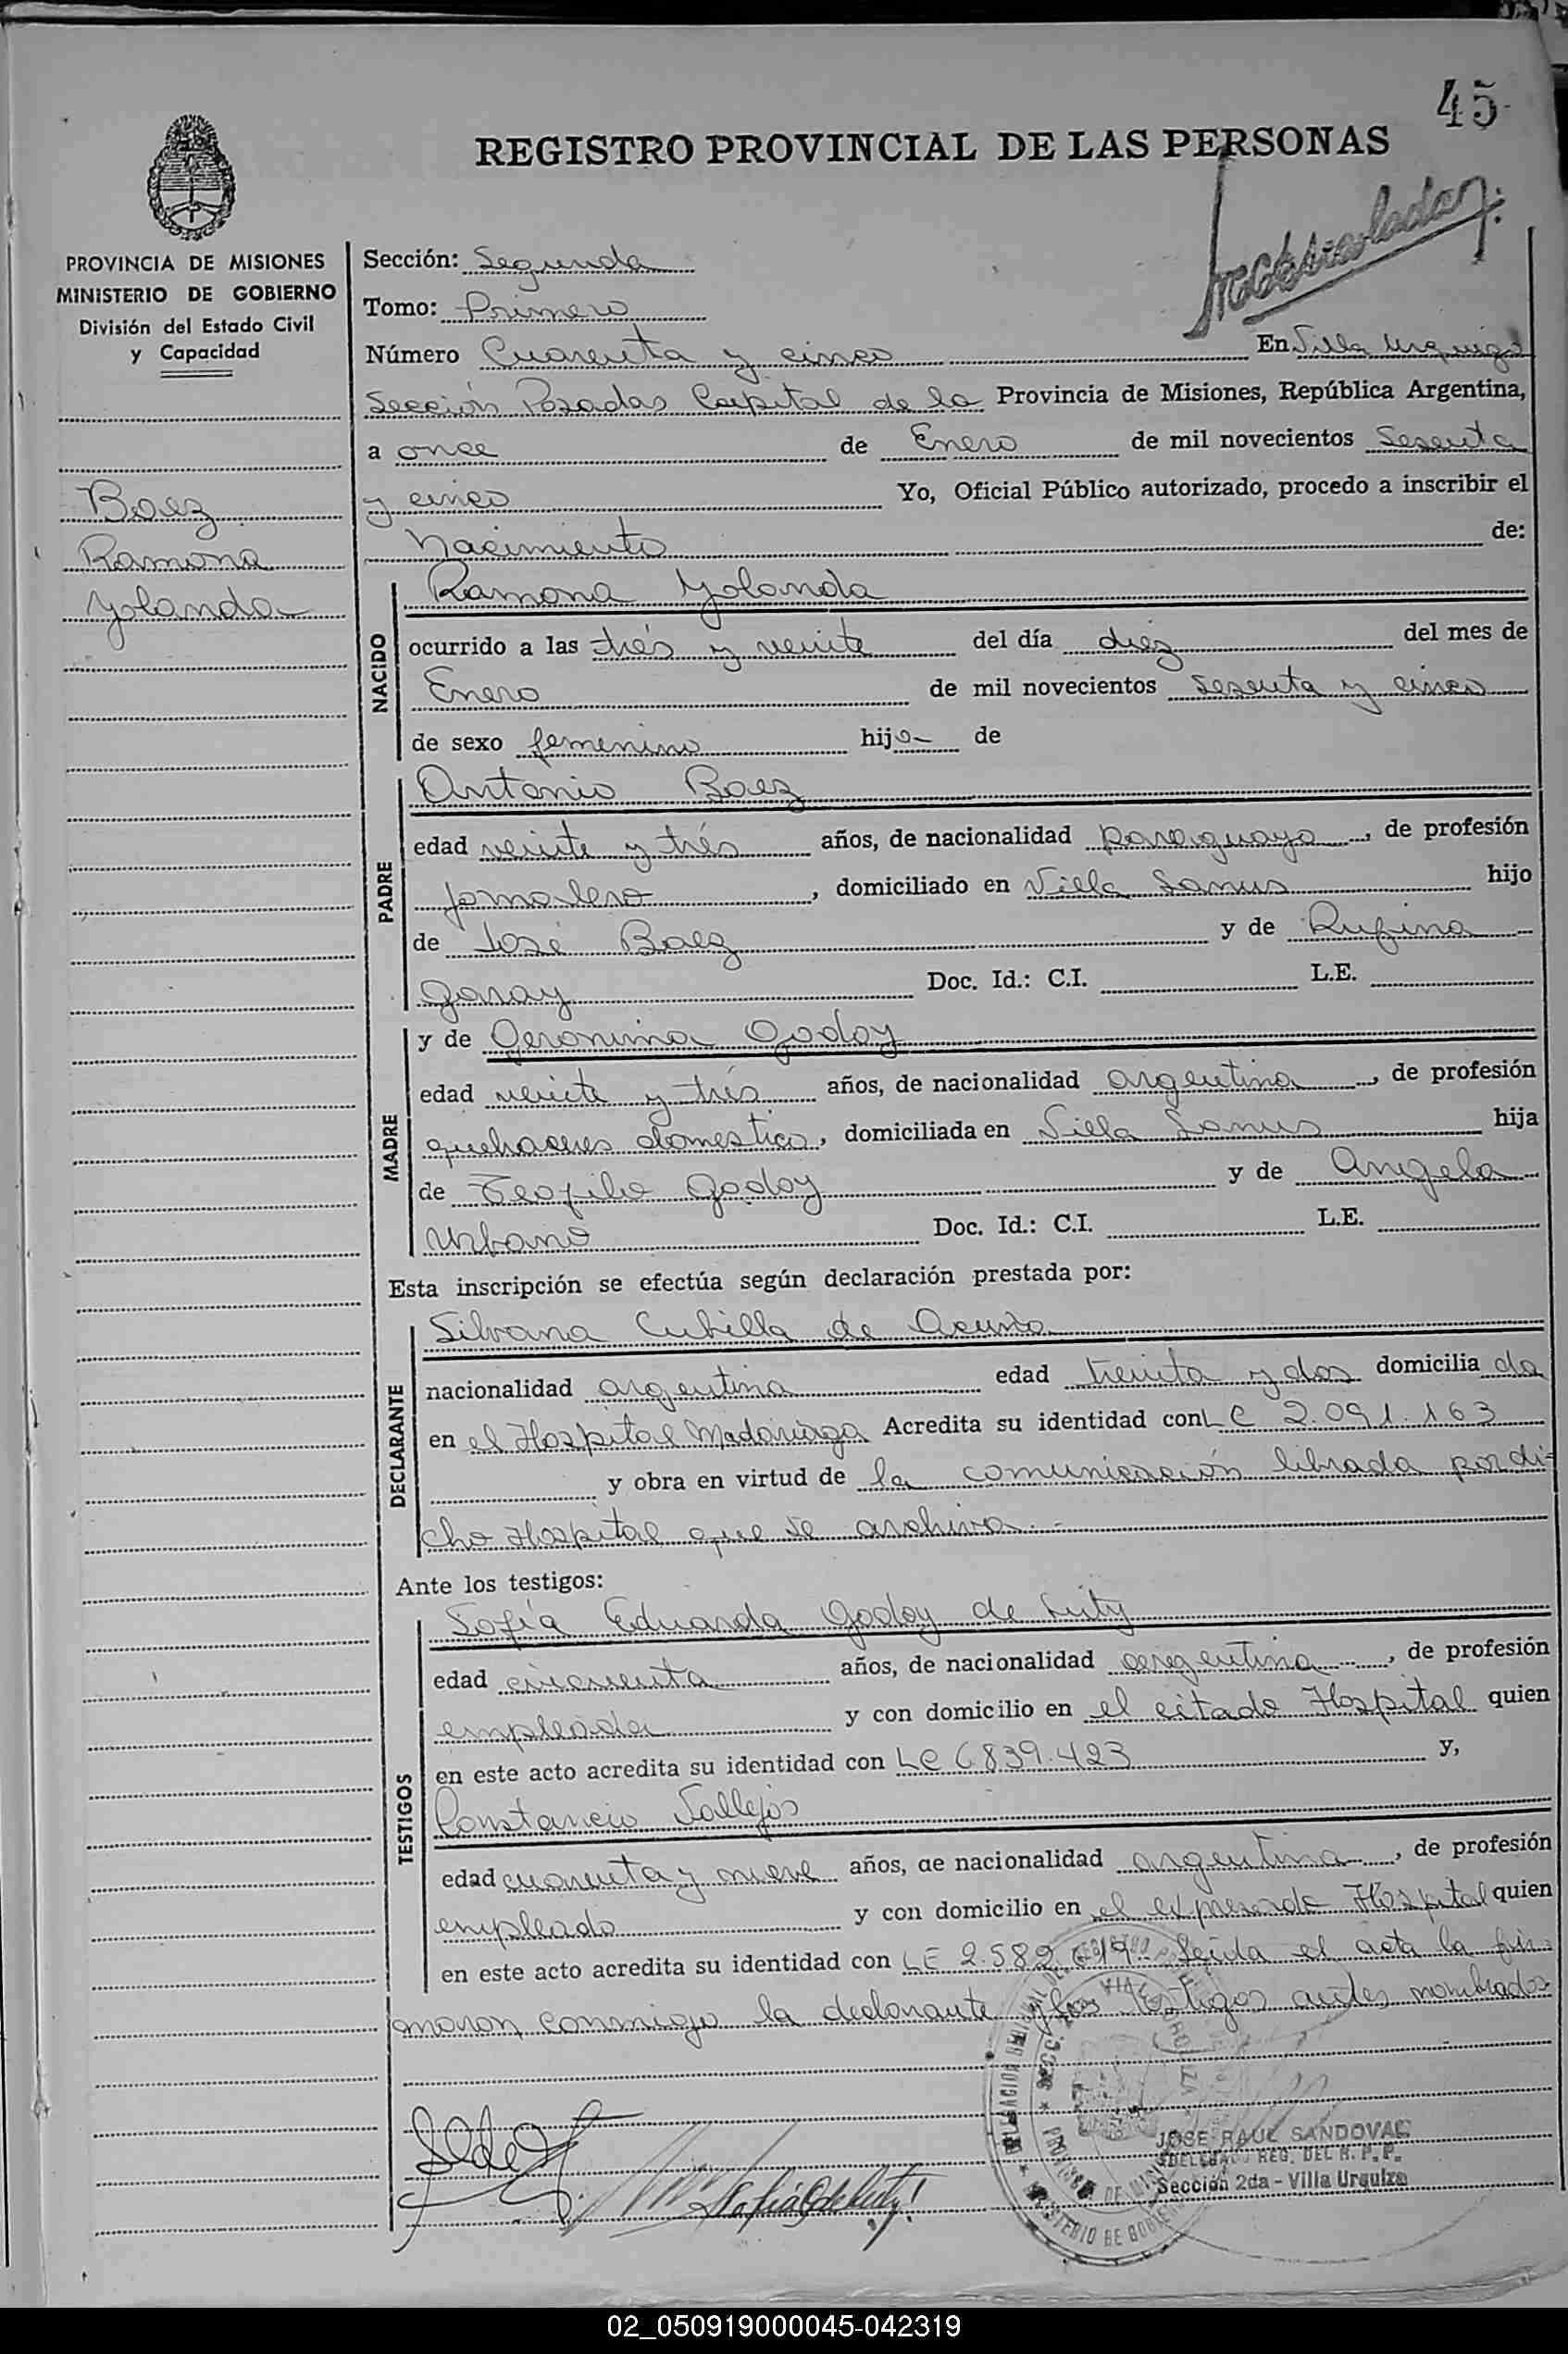 45
REGISTRO PROVINCIAL DE LAS PERSONAS
PROVINCIA DE MISIONES
MINISTERIO DE GOBIERNO
División del Estado Civil
y Capacidad
Baez
Ramona
Yolanda
Sección: Segunda
Tomo: Primero
Número Cuarenta y cinco En Villa Urquiza
Sección Posadas Capital de la Provincia de Misiones, República Argentina,
a once de Enero de mil novecientos Sesenta
y cinco Yo, Oficial Público autorizado, procedo a inscribir el
Nacimiento de:
NACIDO
Ramona Yolanda
ocurrido a las trés y veinte del día diez del mes de
Enero de mil novecientos sesenta y cinco
de sexo femenino hija de
PADRE
Antonio Baez
edad veinte y trés años, de nacionalidad paraguaya, de profesión
jornalero, domiciliado en Villa Lanus hijo
de José Baez y de Rufina
Garay Doc. Id.: C.I. L.E.
MADRE
y de Geronima Godoy
edad veinte y trés años, de nacionalidad argentina, de profesión
quehaceres domestica, domiciliada en Villa Lanus hija
de Teofilo Godoy y de Angela
Urbano Doc. Id.: C.I. L.E.
Esta inscripción se efectúa según declaración prestada por:
DECLARANTE
Silvana Cubilla de Acuña
nacionalidad argentina edad treinta y dos domicilia da
en el Hospital Madariaga Acredita su identidad con L C 2.091.163
y obra en virtud de la comunicación librada por di-
cho Hospital que se archiva.-
Ante los testigos:
TESTIGOS
Sofía Eduarda Godoy de
edad cincuenta años, de nacionalidad argentina, de profesión
empleada y con domicilio en el citado Hospital quien
en este acto acredita su identidad con LC 6839.423 y,
Constancio Vallejos
edad cuarenta y nueve años, de nacionalidad argentina, de profesión
empleado y con domicilio en el expresado Hospital quien
en este acto acredita su identidad con LE 2.582.619. Leída el acta la fir-
maron conmigo la declarante y los testigos antes nombrados
JOSE RAUL SANDOVAL
REG. DEL R. P. P.
Sección 2da - Villa Urquiza
02_050919000045-042319